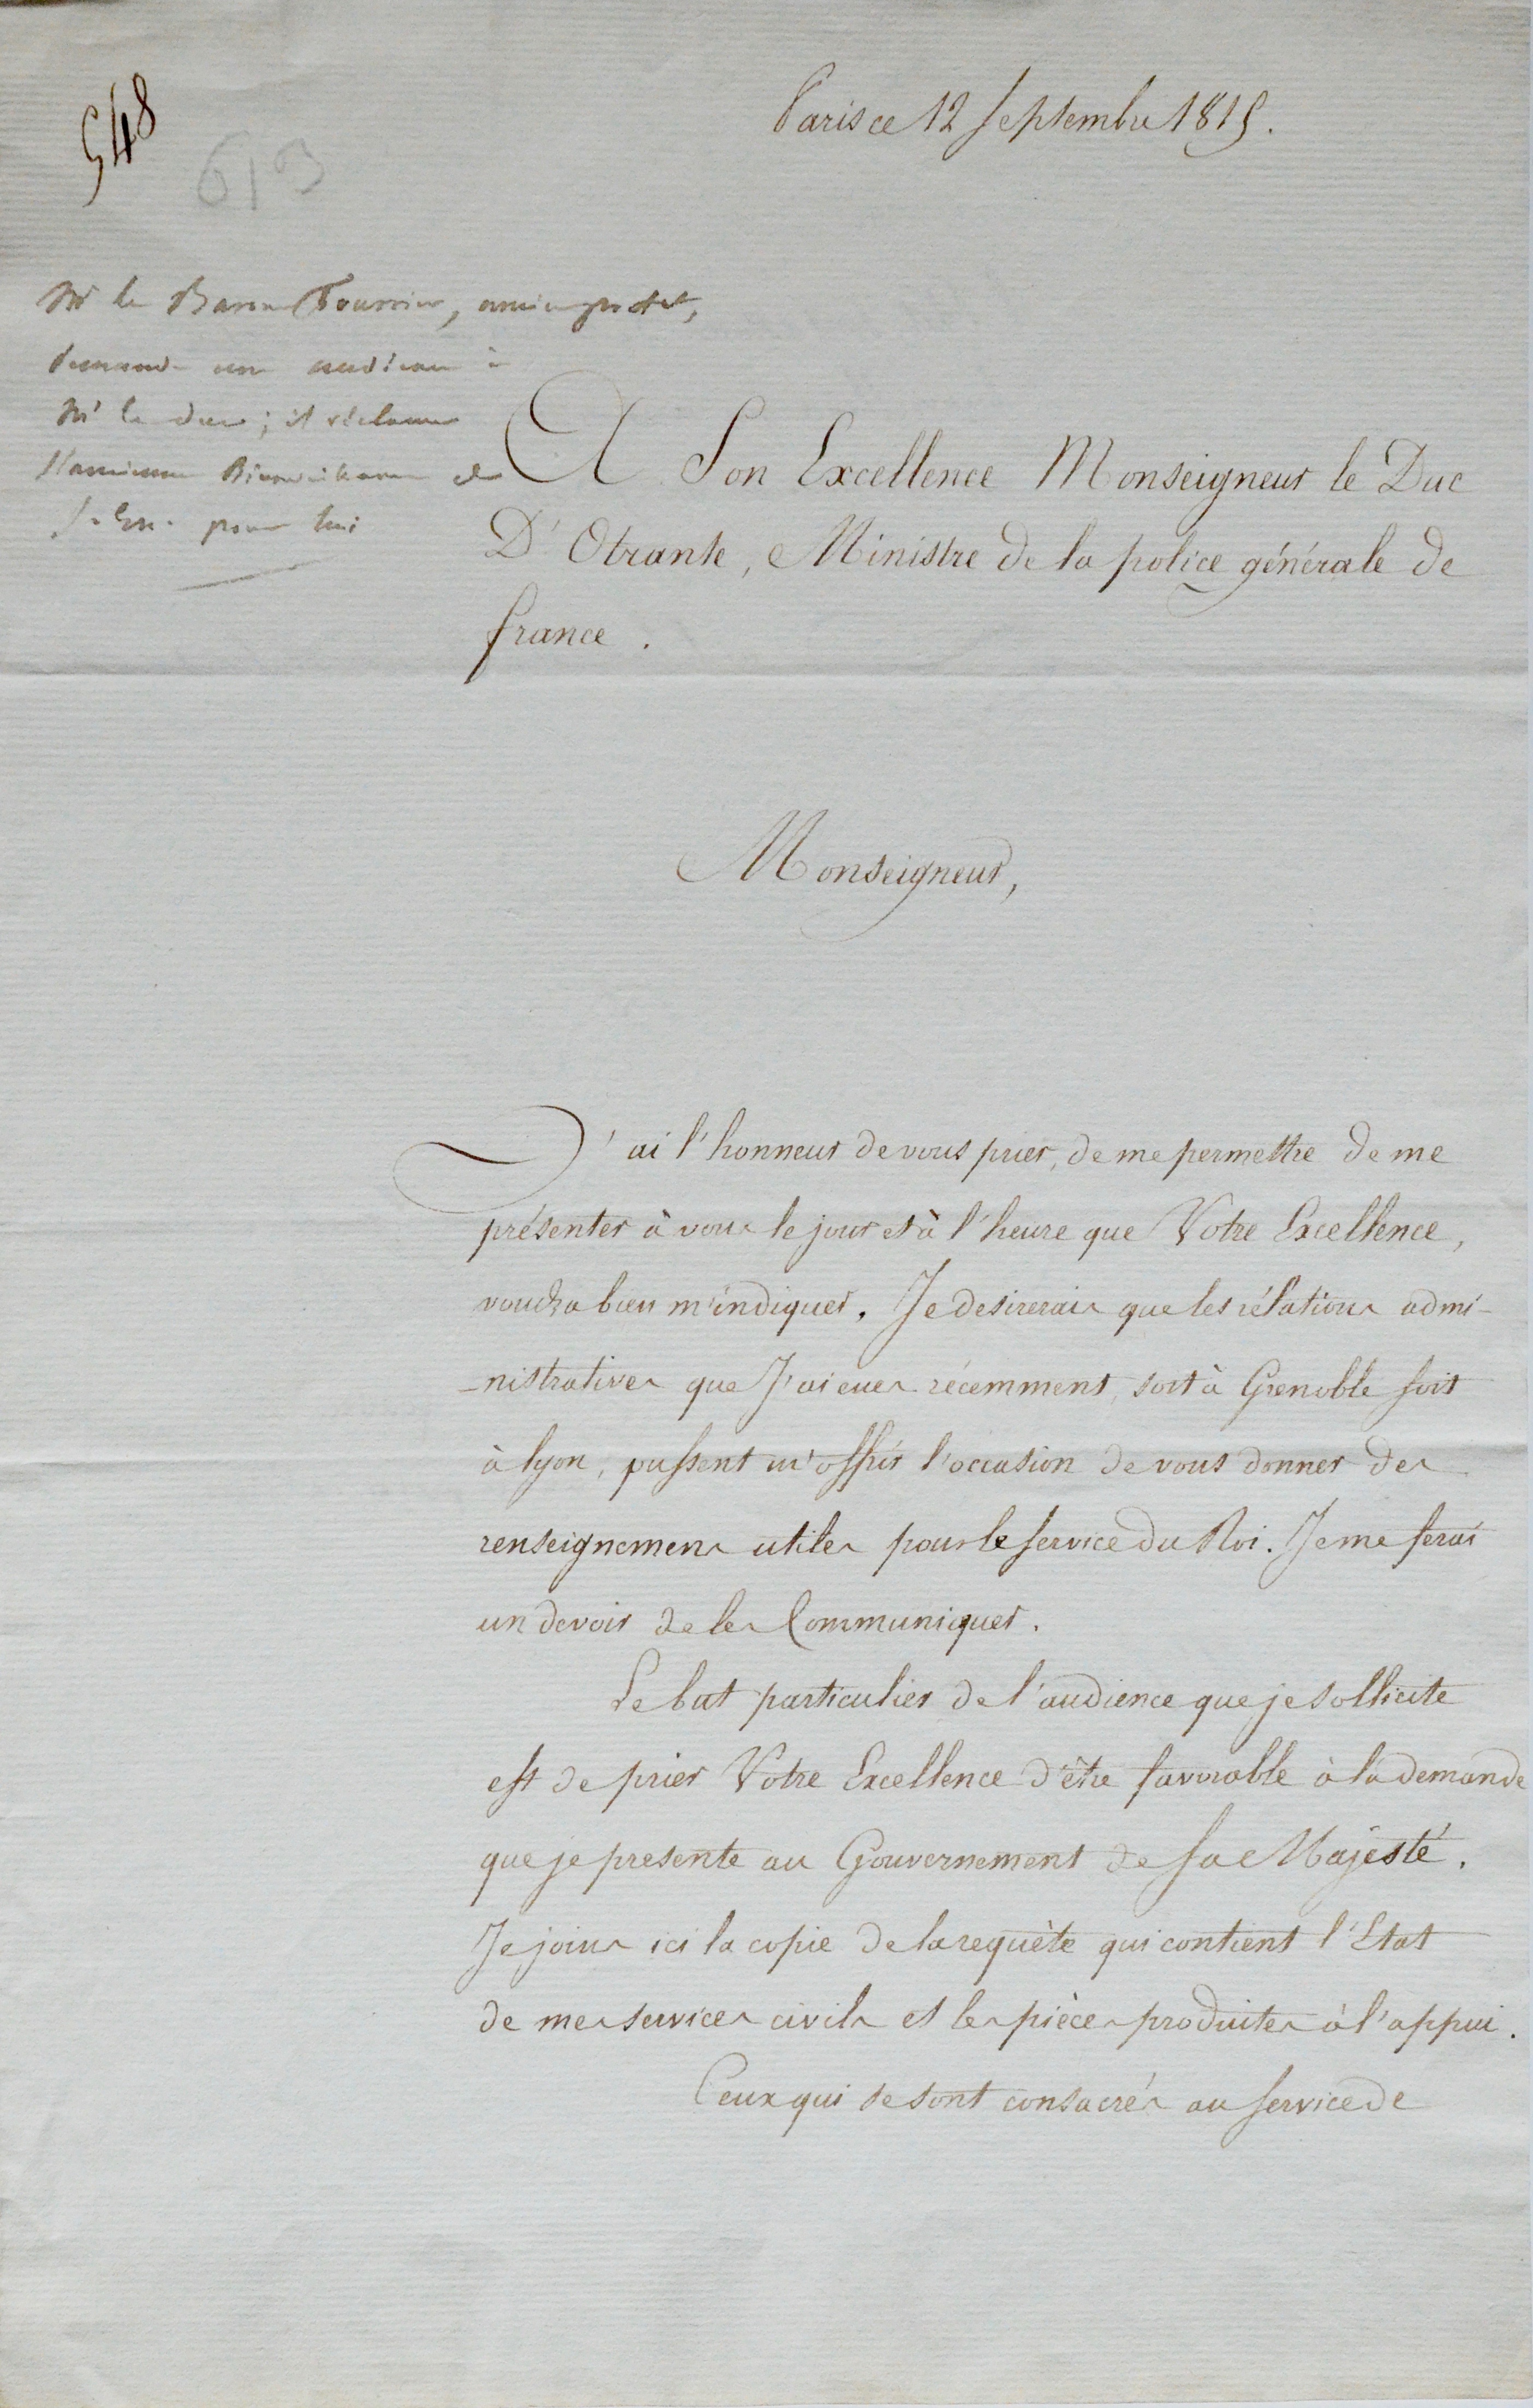 548
613
Paris ce 12 Septembre 1815.
Mr le Baron Fourrier, ancien préfet,
demande une audience à
Mr le duc ; il réclame
l'ancienne Bienveillance de
S. Exc. pour lui
A Son Excellence Monseigneur le Duc
D'Otrante, Ministre de la police générale de
france.
Monseigneur,
J'ai l'honneur de vous prier, de me permettre de me
présenter à vous le jour et à l'heure que Votre Excellence,
voudra bien m'indiquer. Je desirerais que les rélations admi-
-nistratives que J'ai eues récemment, soit à Grenoble soit
à lyon, pussent m'offrir l'occasion de vous donner des
renseignemens utiles pour le service du Roi. Je me ferai
un devoir de les Communiquer.
Le but particulier de l'audience que je sollicite
est de prier Votre Excellence d'être favorable à la demande
que je presente au Gouvernement de Sa Majesté.
Je joins ici la copie de la requète qui contient l'Etat
de mes services civils et les pièces produites à l'appui.
Ceux qui se sont consacrés au service de